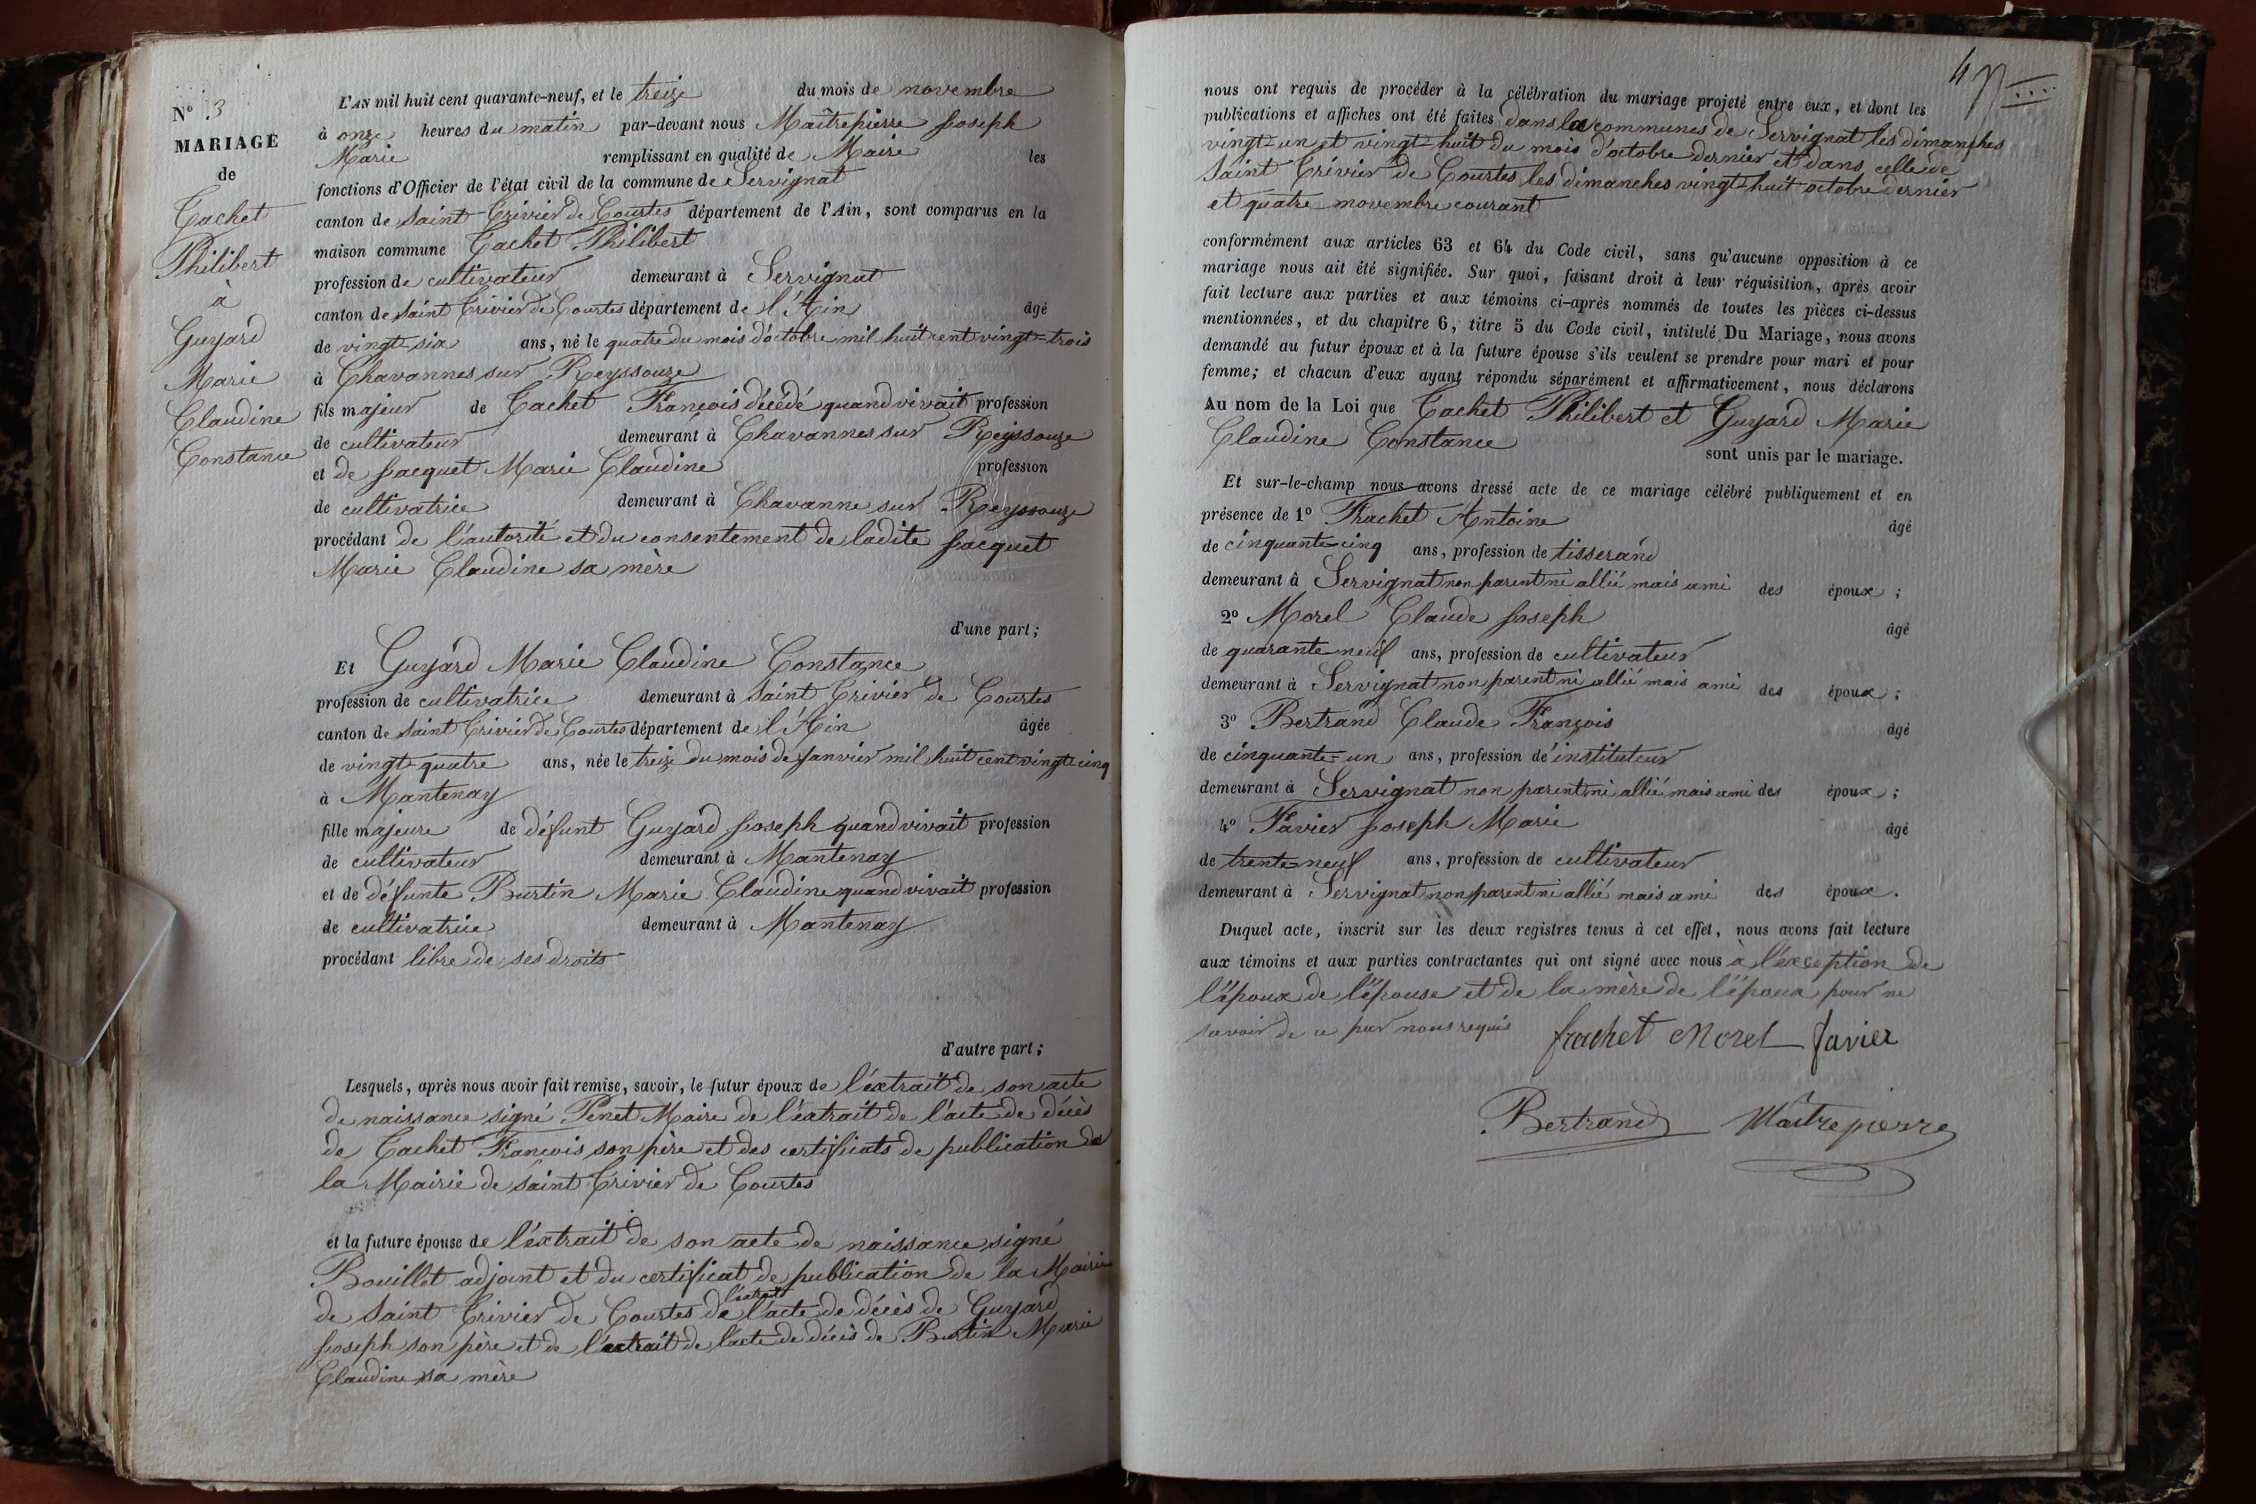 N° 3
MARIAGE
de
Tachet
Philibert
à
Guyard
Marie
Claudine
Constance
L'AN mil huit cent quarante-neuf, et le treize du mois de novembre
à onze heures du matin par-devant nous Maitrepierre Joseph
Marie remplissant en qualité de Maire les
fonctions d'Officier de l'état civil de la commune de Servignat
canton de Saint Trivier de Courtes département de l'Ain, sont comparus en la
maison commune Tachet Philibert
profession de cultivateur demeurant à Servignat
canton de Saint Trivier de Courtes département de l'Ain âgé
de vingt-six ans, né le quatre du mois d'octobre mil huit cent vingt-trois
à Chavannes sur Reyssouze
fils majeur de Tachet François décédé quand vivait profession
de cultivateur demeurant à Chavannes sur Reyssouze
et de Jacquet Marie Claudine profession
de cultivatrice demeurant à Chavanne sur Reyssouze
procédant de l'autorité et du consentement de ladite Jacquet
Marie Claudine sa mère
d'une part;
Et Guyard Marie Claudine Constance
profession de cultivatrice demeurant à Saint Trivier de Courtes
canton de Saint Trivier de Courtes département de l'Ain âgée
de vingt-quatre ans, née le treize du mois de Janvier mil huit cent vingt cinq
à Mantenay
fille majeure de défunt Guyard Joseph quand vivait profession
de cultivateur demeurant à Mantenay
et de défunte Burtin Marie Claudine quand vivait profession
de cultivatrice demeurant à Mantenay
procédant libre de ses droits
d'autre part;
Lesquels, après nous avoir fait remise, savoir, le futur époux de l'extrait de son acte
de naissance signé Penet Maire de l'extrait de l'acte de décès
de Tachet François son père et des certificats de publication de
la Mairie de Saint Trivier de Courtes
et la future épouse de l'extrait de son acte de naissance signé
Bouillet adjoint et du certificat de publication de la Mairie
de Saint Trivier de Courtes de l'extrait l'acte de décès de Guyard
Joseph son père et de l'extrait de l'acte de décès de Burtin Marie
Claudine sa mère
4
nous ont requis de procéder à la célébration du mariage projeté entre eux, et dont les
publications et affiches ont été faites dans les communes de Servignat les dimanches
vingt-un et vingt-huit du mois d'octobre dernier et dans celle de
Saint Trivier de Courtes les dimanches vingt-huit octobre dernier
et quatre novembre courant
conformément aux articles 63 et 64 du Code civil, sans qu'aucune opposition à ce
mariage nous ait été signifiée. Sur quoi, faisant droit à leur réquisition, après avoir
fait lecture aux parties et aux témoins ci-après nommés de toutes les pièces ci-dessus
mentionnées, et du chapitre 6, titre 5 du Code civil, intitulé Du Mariage, nous avons
demandé au futur époux et à la future épouse s'ils veulent se prendre pour mari et pour
femme; et chacun d'eux ayant répondu séparément et affirmativement, nous déclarons
Au nom de la Loi que Tachet Philibert et Guyard Marie
Claudine Constance sont unis par le mariage.
Et sur-le-champ nous avons dressé acte de ce mariage célébré publiquement et en
présence de 1° Frachet Antoine âgé
de cinquante-cinq ans, profession de tisserand
demeurant à Servignat non parent ni allié mais ami des époux;
2° Morel Claude Joseph âgé
de quarante-neuf ans, profession de cultivateur
demeurant à Servignat non parent ni allié mais ami des époux;
3° Bertrand Claude François âgé
de cinquante-un ans, profession d'instituteur
demeurant à Servignat non parent ni allié mais ami des époux;
4° Favier Joseph Marie âgé
de trente-neuf ans, profession de cultivateur
demeurant à Servignat non parent ni allié mais ami des époux.
Duquel acte, inscrit sur les deux registres tenus à cet effet, nous avons fait lecture
aux témoins et aux parties contractantes qui ont signé avec nous à l'exception de
l'époux de l'épouse et de la mère de l'époux pour ne
savoir de ce par nous requis frachet Morel favier
Bertrand Maitrepierre